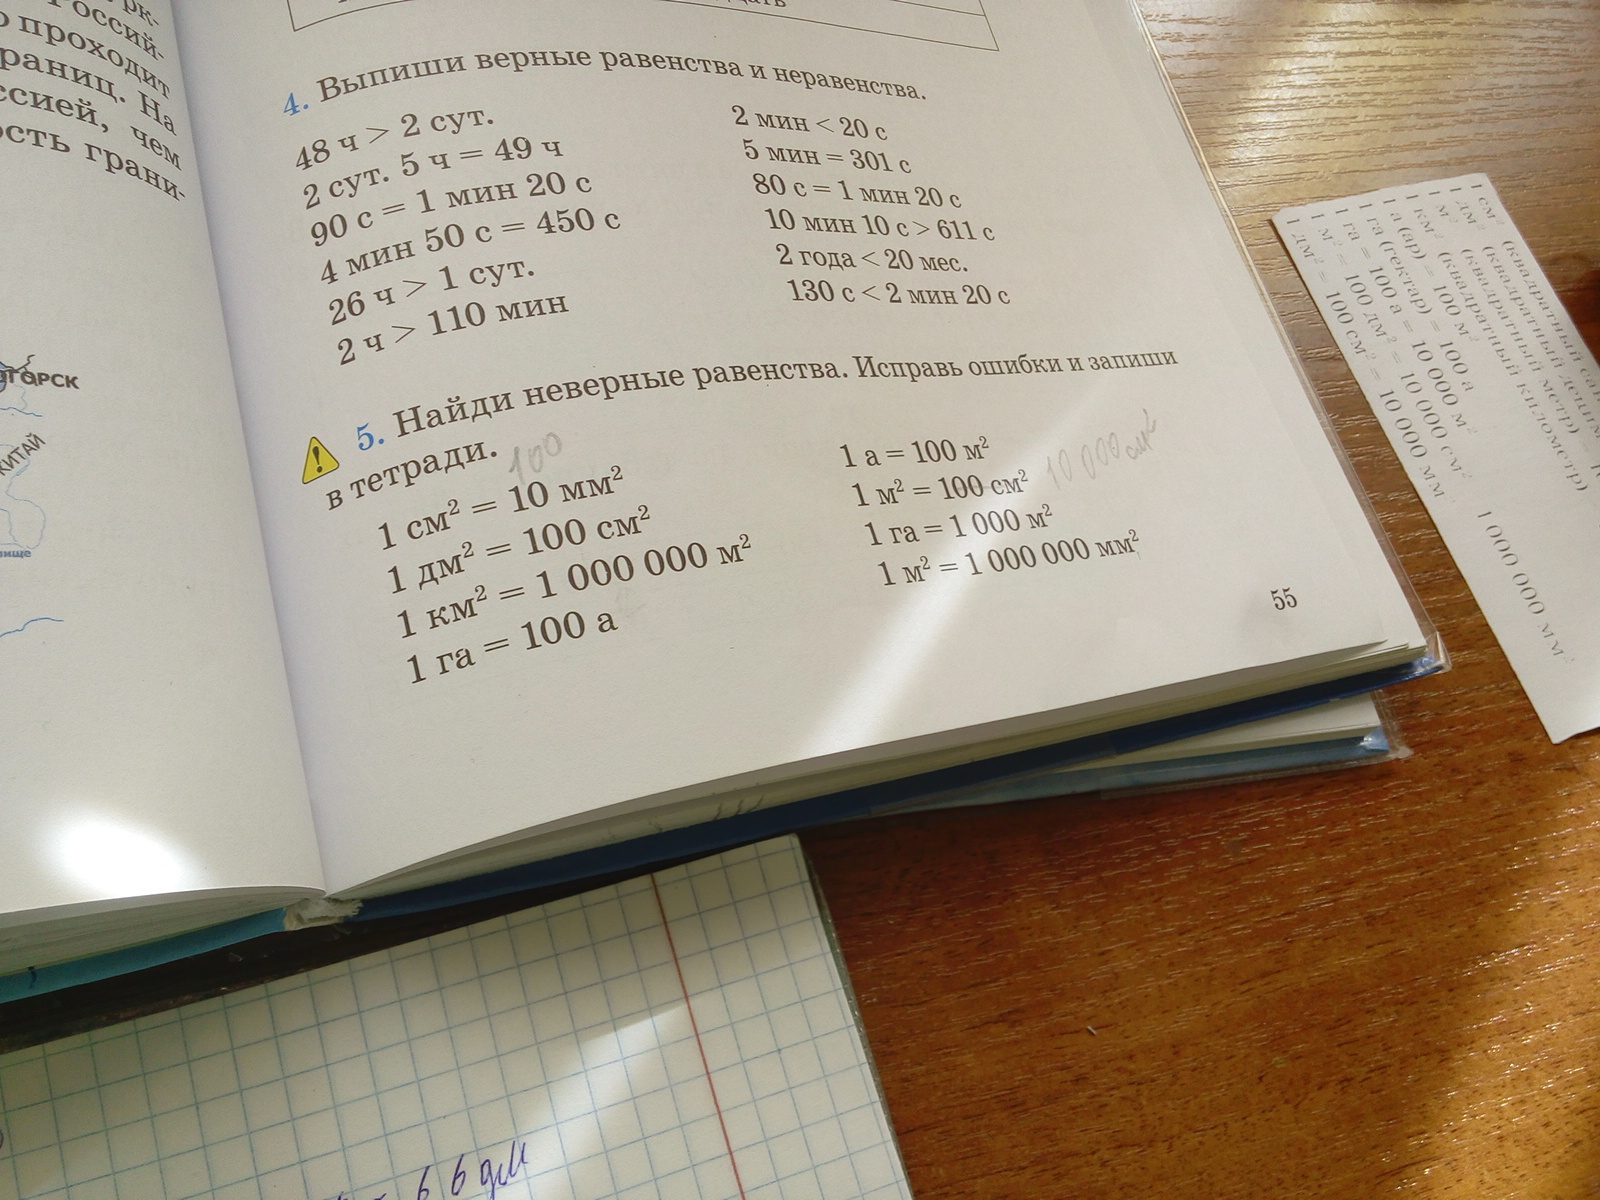 рк-
Россий-
проходит
раниц. На
ссией, чем
ость грани-
КИТАЙ
4. Выпиши верные равенства и неравенства.
48 ч > 2 сут.
2 сут. 5 ч = 49 ч
90 с = 1 мин 20 с
4 мин 50 с = 450 с
26 ч > 1 сут.
2 ч > 110 мин
2 мин < 20 с
5 мин = 301 с
80 с = 1 мин 20 с
10 мин 10 с > 611 с
2 года < 20 мес.
130 с < 2 мин 20 с
5. Найди неверные равенства. Исправь ошибки и запиши
в тетради.
100
1 см² = 10 мм²
1 дм² = 100 см²
1 км² = 1 000 000 м²
1 га = 100 а
1 а = 100 м²
1 м² = 100 см² 10 000 см²
1 га = 1 000 м²
1 м² = 1 000 000 мм²
55
1 см² (квадратный сан
1 дм² (квадратный децим
1 м² (квадратный метр) =
1 км² (квадратный километр)
1 а (ар) = 100 м²
1 га (гектар) = 100 а
1 га = 100 а = 10 000 м²
1 м² = 100 дм² = 10 000 см² 1 000 000 мм²
1 дм² = 100 см² = 10 000 мм
6 6 дм